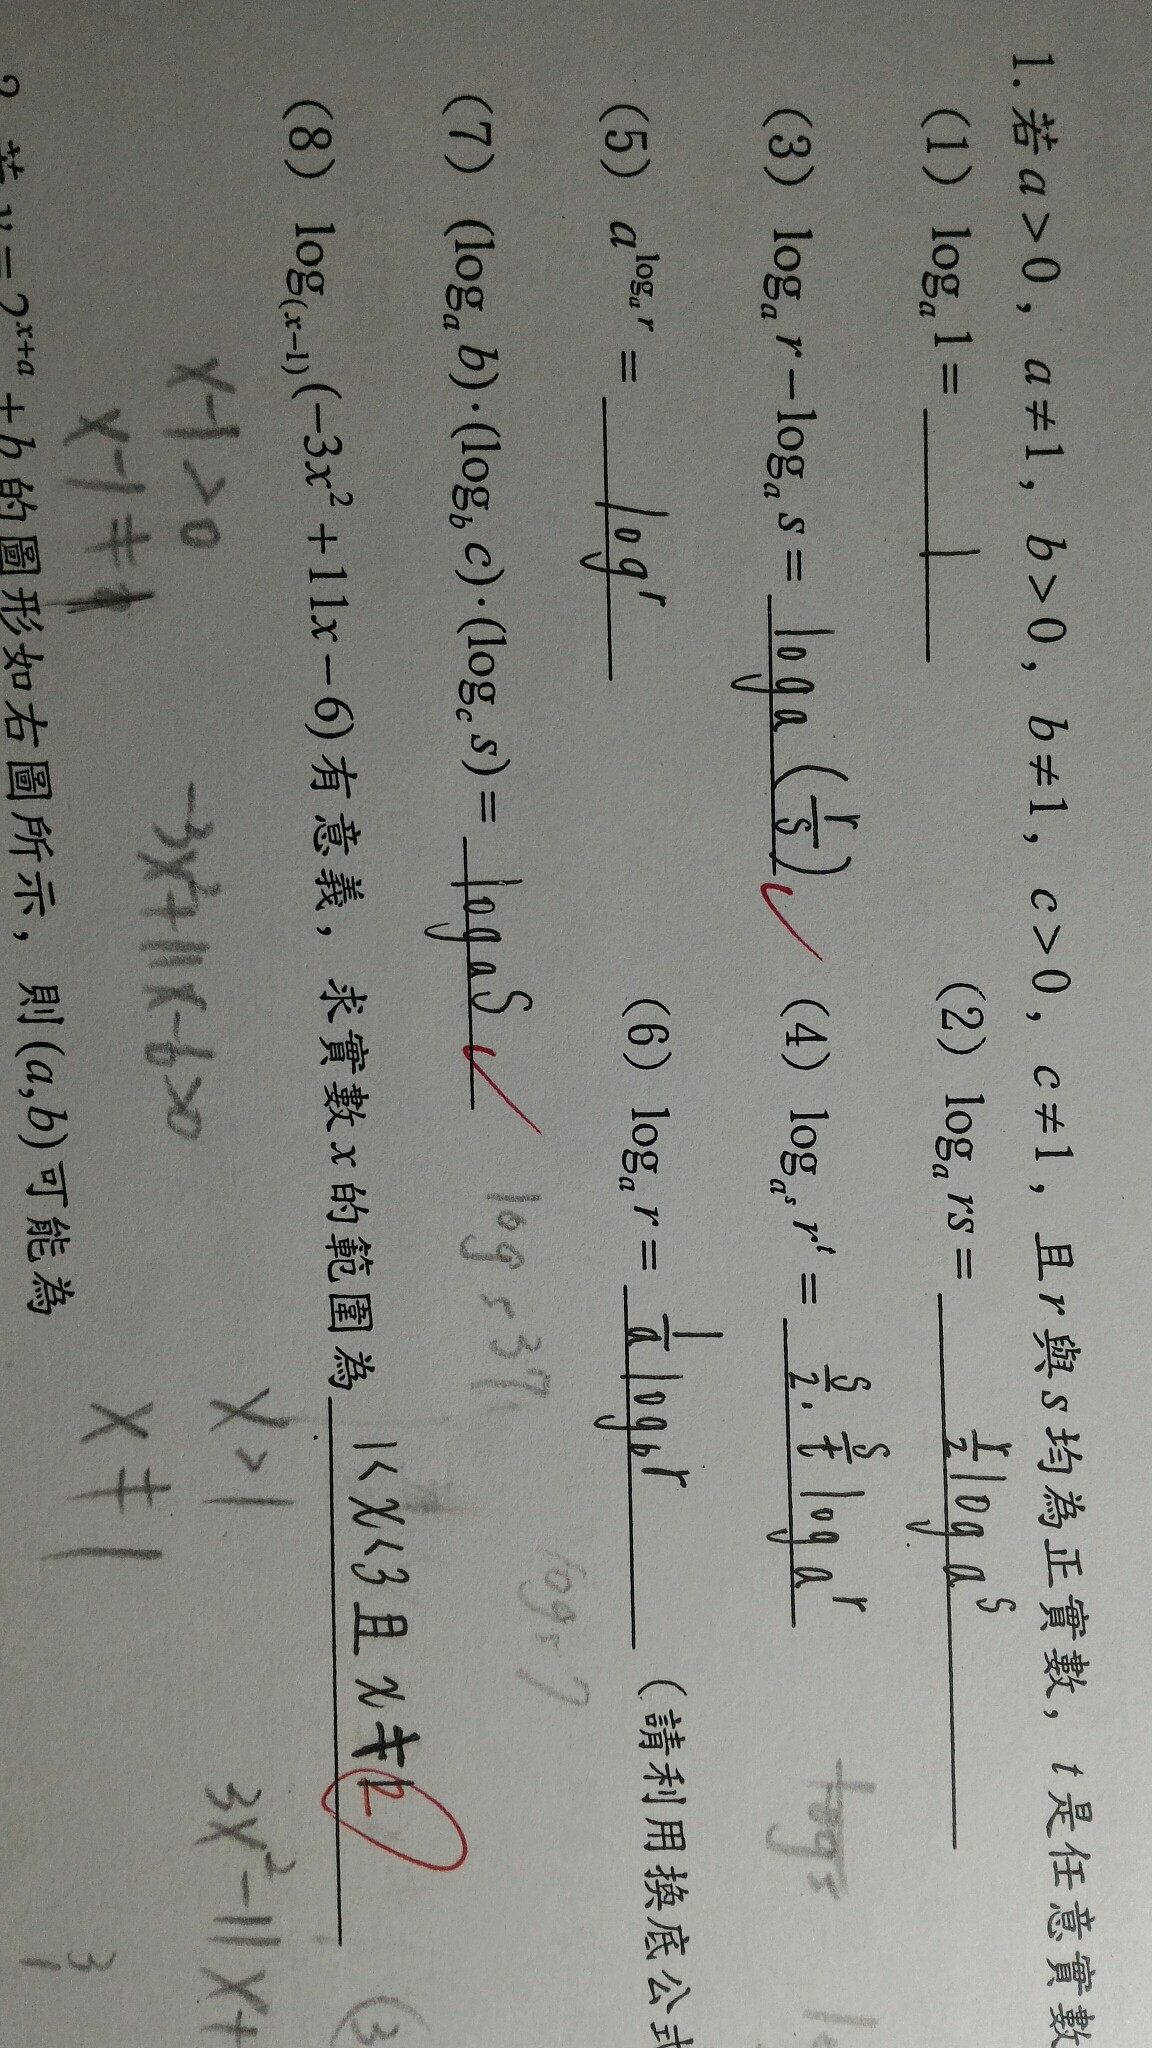 1. 若 a>0，a≠1，b>0，b≠1，c>0，c≠1，且 r 與 s 均為正實數，t 是任意實數
(1) logₐ1= 1 (2) logₐrs= r/2 log a^s
(3) logₐr−logₐs= log a (r/s) ✓ (4) log_{a^s} r^t = s/2 · s/t log a^r
(5) a^{logₐr} = log^r (6) logₐr= 1/a log b^r (請利用換底公式
(7) (logₐb)·(log_b c)·(log_c s)= log a^s ✓
log s 37
(8) log_{(x−1)}(−3x²+11x−6)有意義，求實數 x 的範圍為 1<x<3 且 x≠2
x-1>0 x>1 3x²-11x+
x-1≠1 -3x²+11x-6>0 x≠1
2. 若 y=2^{x+a}+b 的圖形如右圖所示，則(a,b)可能為